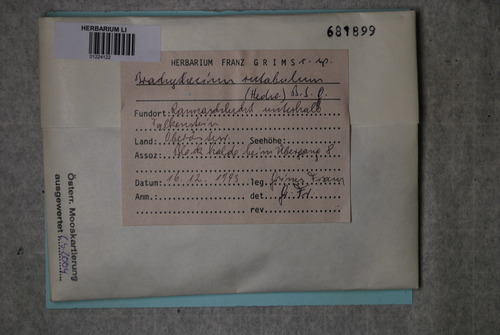 HERBARIUM LI
01224122
689899
HERBARIUM FRANZ GRIMS
Brachythecium rutabulum
(Hedw.) B.S.G.
Fundort: Rannaschlucht unterhalb
Falkenstein
Land: Oberösterr. Seehöhe:
Assoz.: Blockhalde beim Übergang 8
Datum: 16.12.1993 leg. Grims Franz
Anm.: det. G. Fr.
rev.
Österr. Mooskartierung
ausgewertet